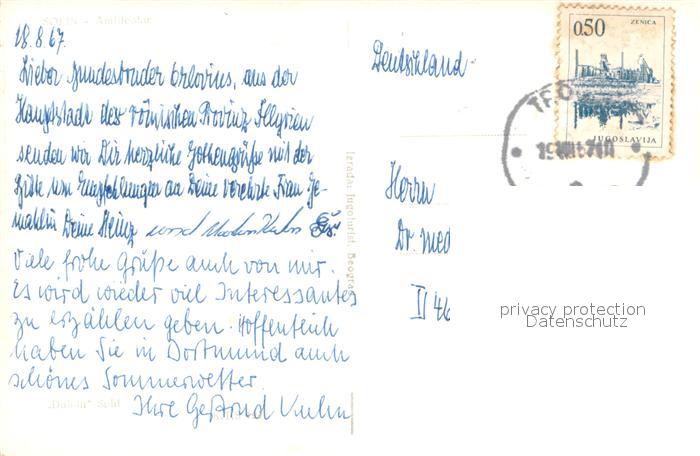 SOLIN - Amfiteatar
18.8.67.
Lieber Bundesbruder Orlovius, aus der
Hauptstadt der römischen Provinz Illyrien
senden wir Dir herzliche Gothengrüße mit der
Bitte um Empfehlungen an Deine verehrte Frau Ge-
mahlin Deine Heinz und
Viele frohe Grüße auch von mir.
Es wird wieder viel Interessantes
zu erzählen geben. Hoffentlich
haben Sie in Dortmund auch
schönes Sommerwetter.
Ihre Gertrud Kuhn
Split
Izrada: Jugoturist, Beograd
Deutschland
0.50
ZENICA
JUGOSLAVIJA
Herrn
Dr. med
II 46
privacy protection
Datenschutz